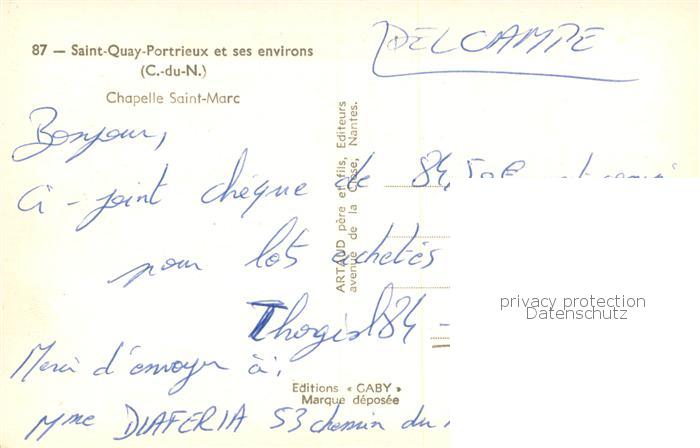 87 — Saint-Quay-Portrieux et ses environs
(C.-du-N.)
Chapelle Saint-Marc
DELCAMPE
Bonjour,
ci-joint chèque de 84,50€
pour lots achetés
84 -
Merci d'envoyer à:
Mme DIAFERIA 53 chemin du
ARTAUD père et fils, Editeurs
avenue de la Close, Nantes.
Editions « GABY »
Marque déposée
privacy protection
Datenschutz